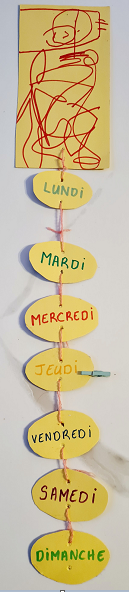 LUNDi
MARDi
MERCREDi
JEUDi
VENDREDi
SAMEDi
DIMANCHE